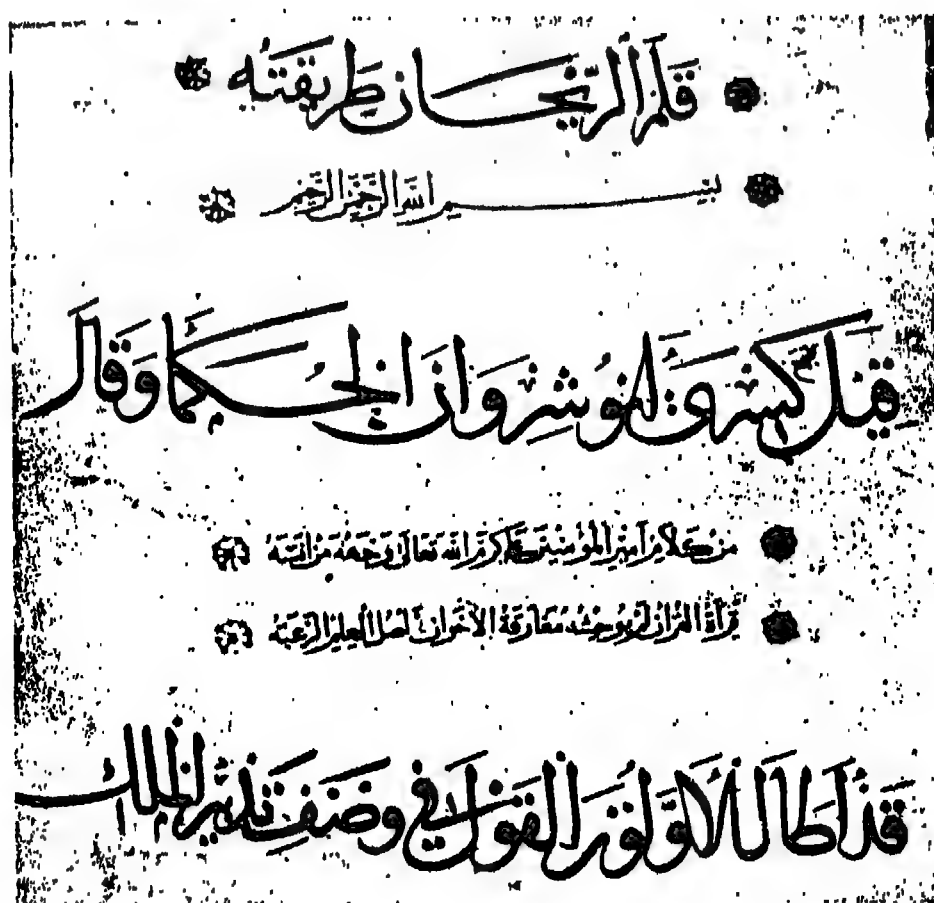 قلم الريحان طريقته
بسم الله الرحمن الرحيم
قيل كسرى لنوشروان الحكما وقال
من كلام امير المؤمنين كرم الله تعالى وجهه من انسته
قرأة القران لم يوحشه مفارقة الاخوان العلم الرعية
قد اطال الاولون القول في وصف تدبير الملك